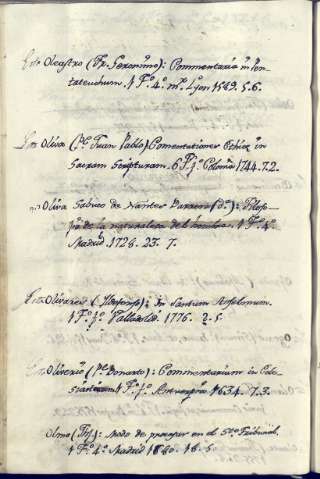 Oleastro (Fr. Geronimo): Commentaria in Pen-
tateuchum. 1 Tº. 4º. mª. Lyon 1589. 5. 6.
Oliva (Pe. Juan Pablo) Comentationes Ethicæ in
Sacram Scripturam. 6 Tº. fº. Coloniæ 1744. 7. 2.
Oliva Sabuco de Nantes Barrera (Dª.): Filoso-
fia de la naturaleza del hombre. 1 Tº. 4º.
Madrid. 1728. 23. 7.
Olivares (Ildefonso): In Apostolorum.
1 Tº. fº. Valladolid 1776. 2. 5.
Oliverio (Pe. Bonarto): Commentarium in Eccle-
1 Tº. fº. Antverpiæ 1634. 7. 3.
Olmo : Modo de proceder en el Sto. Tribunal.
1 Tº. 4º. Madrid 18. 5.